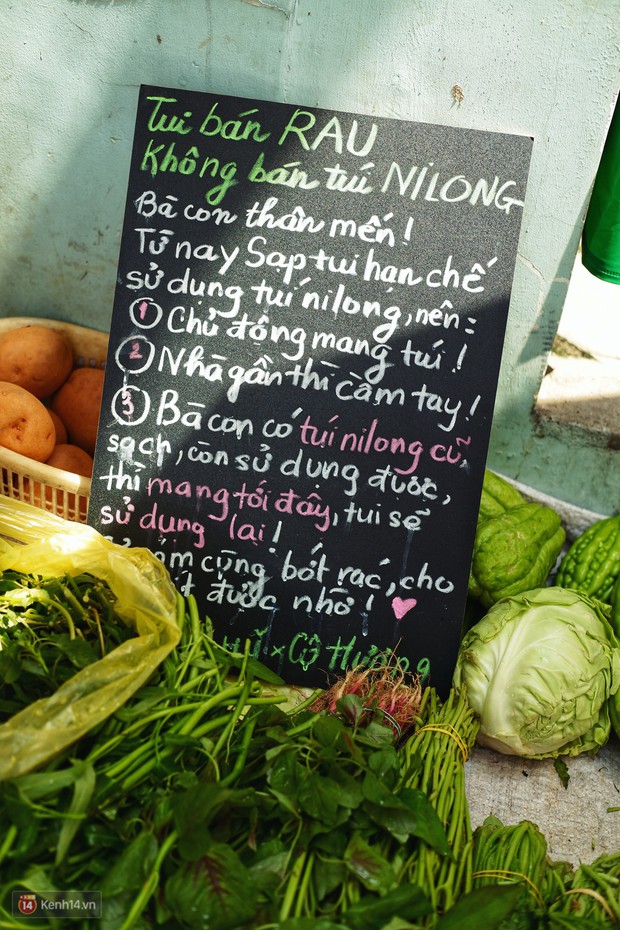 Tui bán RAU
Không bán túi NILONG
Bà con thân mến!
Từ nay Sạp tui hạn chế
sử dụng túi nilong, nên:
1 Chủ động mang túi!
2 Nhà gần thì cầm tay!
3 Bà con có túi nilong cũ,
sạch, còn sử dụng được,
thì mang tới đây, tui sẽ
sử dụng lại!
cùng bớt rác, cho
đất được nhờ!
× Cô Hường
14 Kenh14.vn